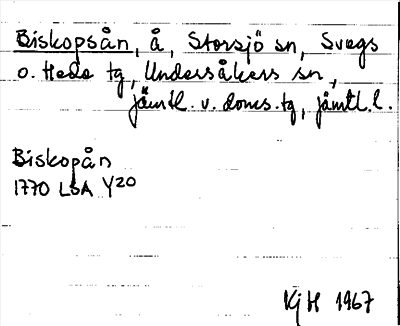 Biskopsån, å, Storsjö sn, Svegs
o. Hede tg, Undersåkers sn,
jämtl. v. doms. tg, jämtl. l.
Biskopån
1770 LSA Y20
KjH 1967